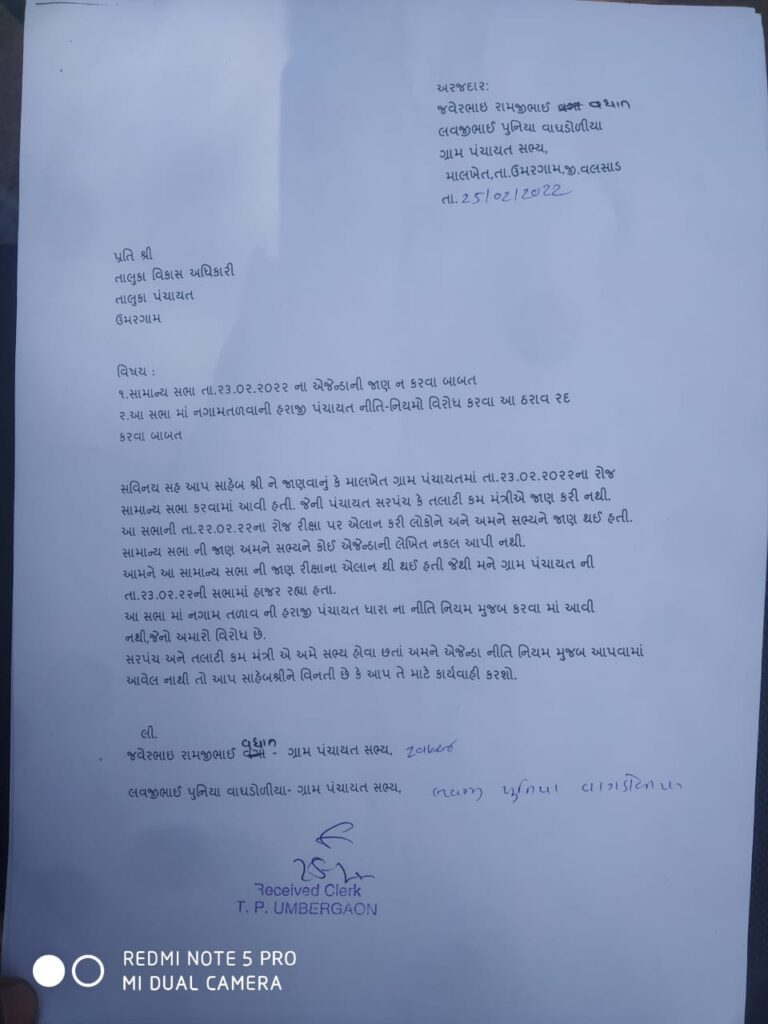 અરજદાર:
જવેરભાઇ રામજીભાઈ વધાત
લવજીભાઈ પુનિયા વાઘડોળીયા
ગ્રામ પંચાયત સભ્ય,
માલખેત,તા.ઉમરગામ,જી.વલસાડ
તા. 25/02/2022
પ્રતિ શ્રી
તાલુકા વિકાસ અધિકારી
તાલુકા પંચાયત
ઉમરગામ
વિષય :
૧.સામાન્ય સભા તા.૨૩.૦૨.૨૦૨૨ ના એજેન્ડાની જાણ ન કરવા બાબત
૨.આ સભા માં નગામતળવાની હરાજી પંચાયત નીતિ-નિયમો વિરોધ કરવા આ ઠરાવ રદ
કરવા બાબત
સવિનય સહ આપ સાહેબ શ્રી ને જાણવાનું કે માલખેત ગ્રામ પંચાયતમાં તા.૨૩.૦૨.૨૦૨૨ના રોજ
સામાન્ય સભા કરવામાં આવી હતી. જેની પંચાયત સરપંચ કે તલાટી કમ મંત્રીએ જાણ કરી નથી.
આ સભાની તા.૨૨.૦૨.૨૨ના રોજ રીક્ષા પર એલાન કરી લોકોને અને અમને સભ્યને જાણ થઈ હતી.
સામાન્ય સભા ની જાણ અમને સભ્યને કોઈ એજેન્ડાની લેખિત નકલ આપી નથી.
આમને આ સામાન્ય સભા ની જાણ રીક્ષાના એલાન થી થઈ હતી જેથી મને ગ્રામ પંચાયત ની
તા.૨૩.૦૨.૨૨ની સભામાં હાજર રહ્યા હતા.
આ સભા માં નગામ તળાવ ની હરાજી પંચાયત ધારા ના નીતિ નિયમ મુજબ કરવા માં આવી
નથી,જેનો અમારો વિરોધ છે.
સરપંચ અને તલાટી કમ મંત્રી એ અમે સભ્ય હોવા છતાં અમને એજેન્ડા નીતિ નિયમ મુજબ આપવામાં
આવેલ નાથી તો આપ સાહેબશ્રીને વિનતી છે કે આપ તે માટે કાર્યવાહી કરશો.
લી.
જવેરભાઇ રામજીભાઈ વધાત - ગ્રામ પંચાયત સભ્ય,
લવજીભાઈ પુનિયા વાઘડોળીયા- ગ્રામ પંચાયત સભ્ય, લવજી પુનિયા
Received Clerk
T. P. UMBERGAON
REDMI NOTE 5 PRO
MI DUAL CAMERA